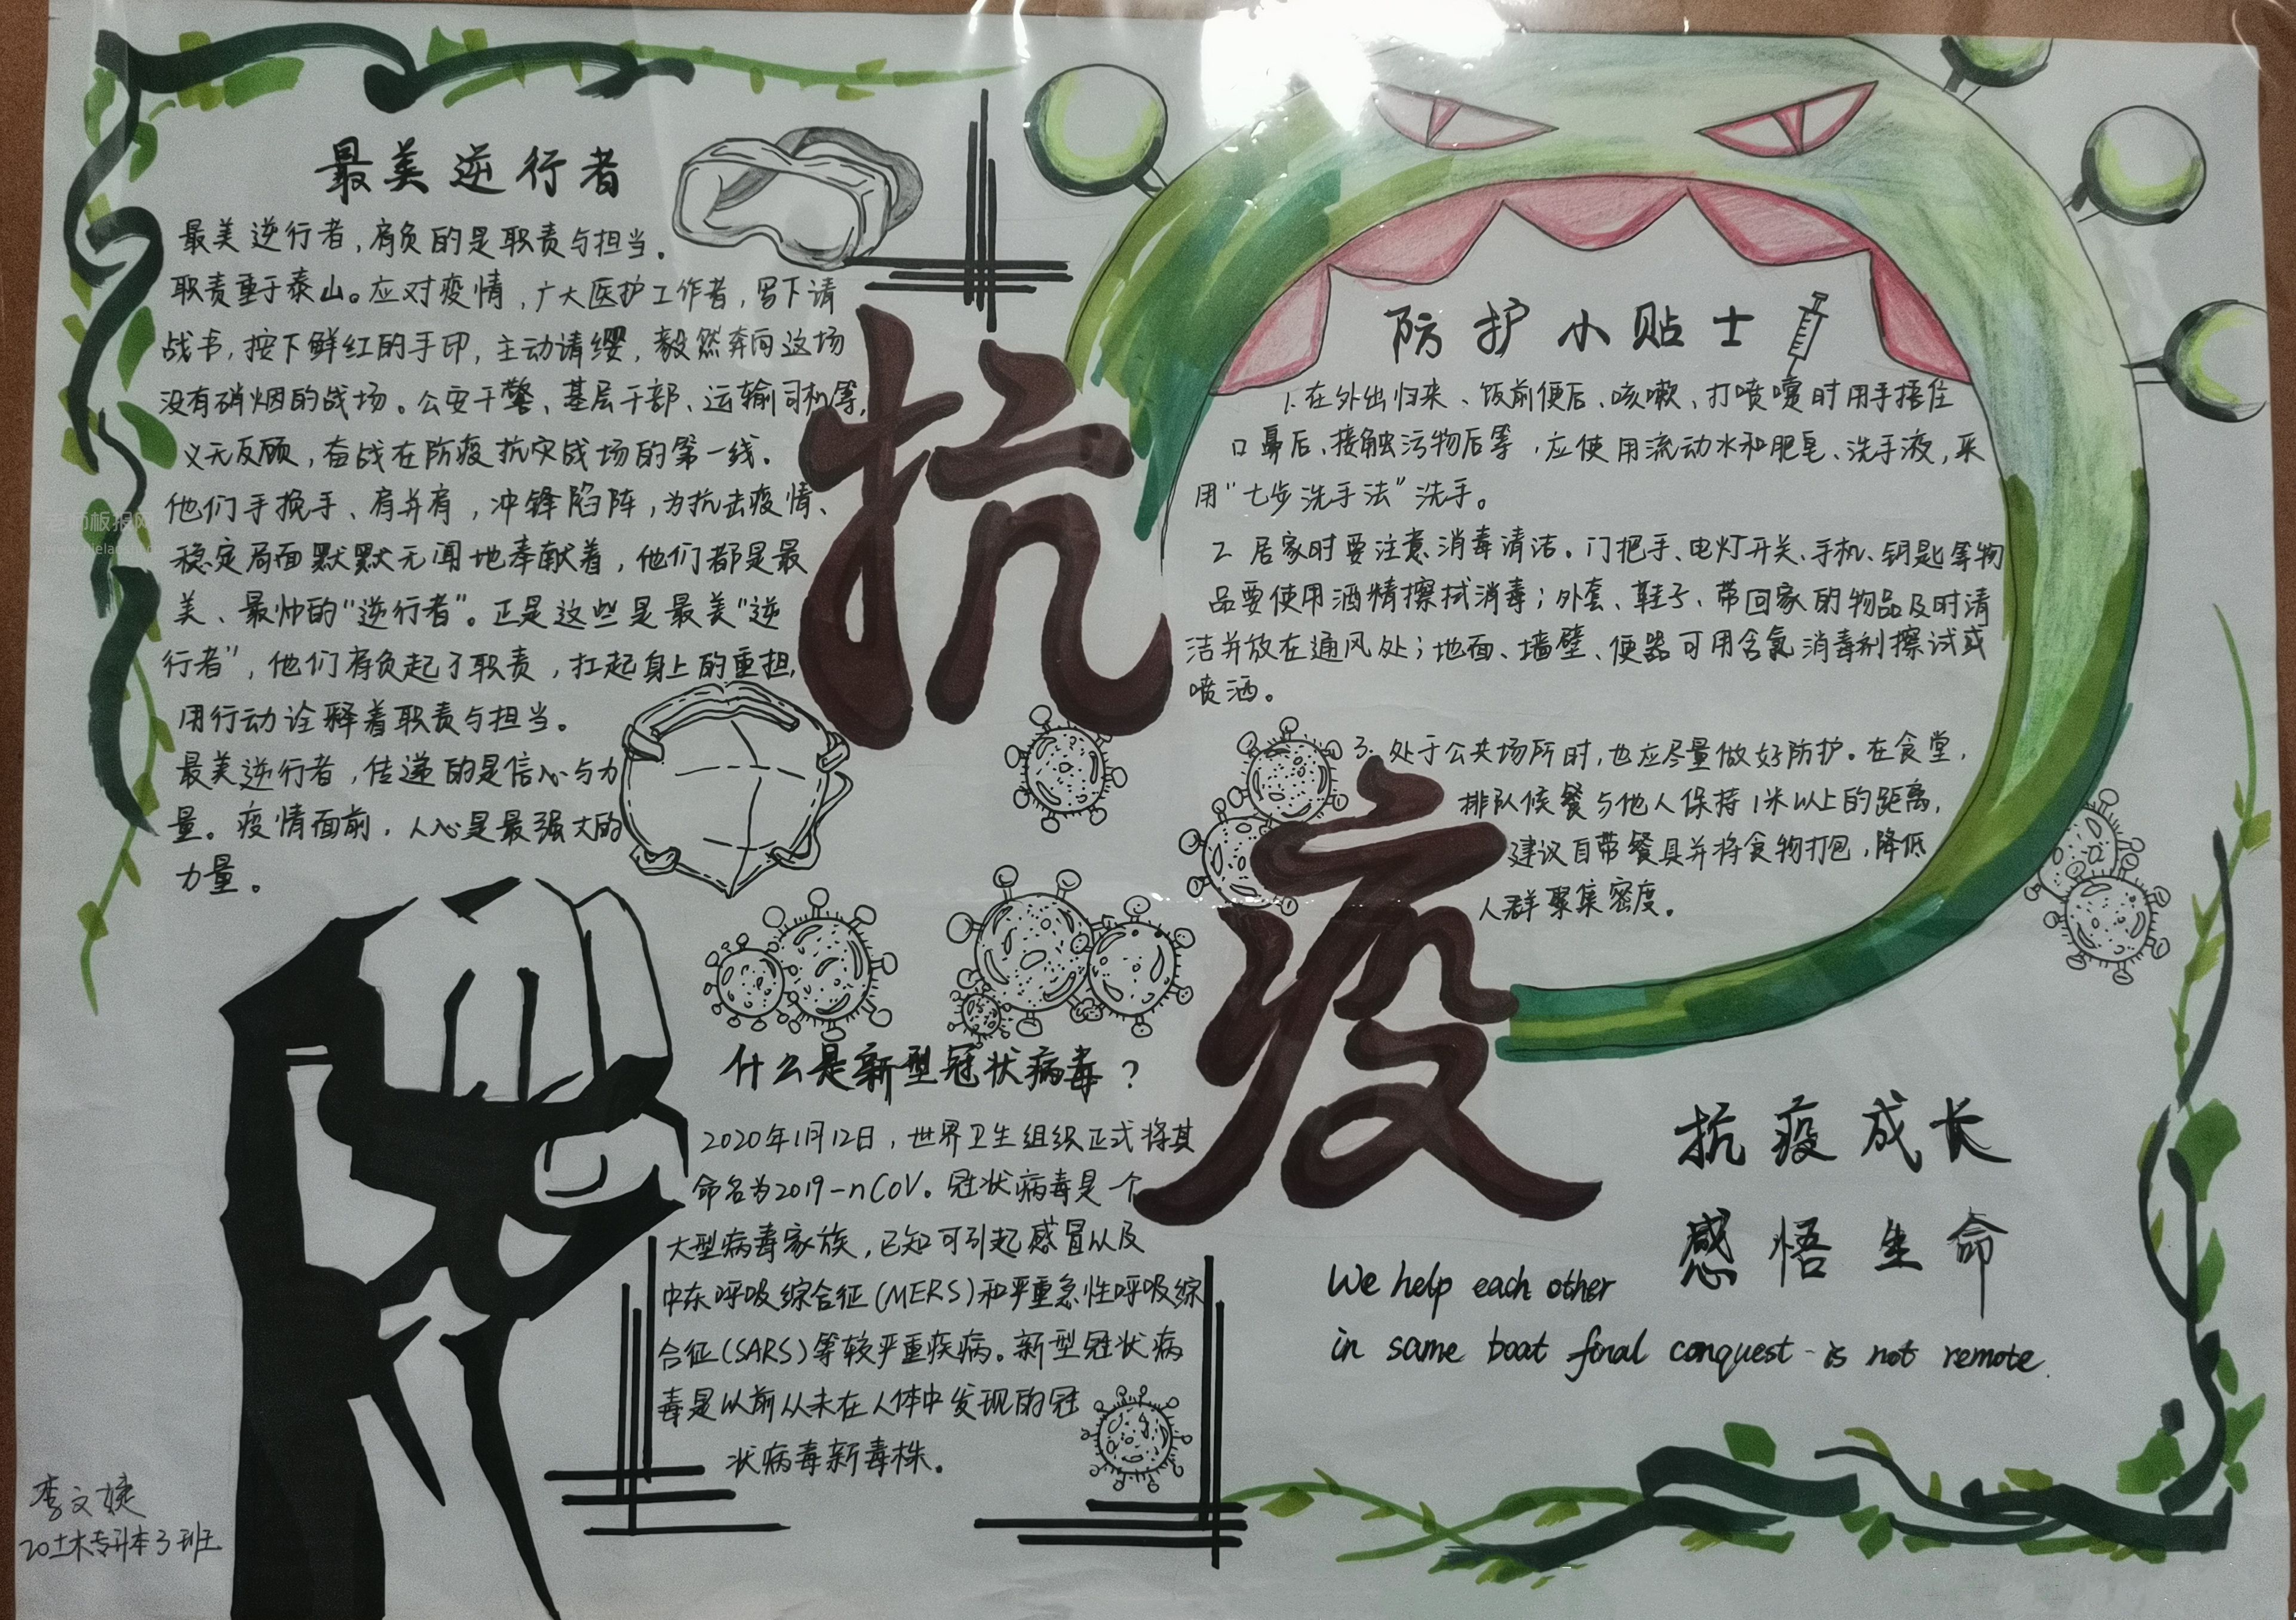 最美逆行者
最美逆行者，肩负的是职责与担当。
职责重于泰山。应对疫情，广大医护工作者，写下请
战书，按下鲜红的手印，主动请缨，毅然奔向这场
没有硝烟的战场。公安干警、基层干部、运输司机等，
义无反顾，奋战在防疫抗灾战场的第一线。
他们手挽手、肩并肩，冲锋陷阵，为抗击疫情、
稳定局面默默无闻地奉献着，他们都是最
美、最帅的“逆行者”。正是这些是最美“逆
行者”，他们肩负起了职责，扛起身上的重担，
用行动诠释着职责与担当。
最美逆行者，传递的是信心与力
量。疫情面前，人心是最强大的
力量。
抗
疫
防护小贴士
1.在外出归来、饭前便后、咳嗽、打喷嚏时用手捂住
口鼻后、接触污物后等，应使用流动水和肥皂、洗手液，采
用“七步洗手法”洗手。
2. 居家时要注意消毒清洁。门把手、电灯开关、手机、钥匙等物
品要使用酒精擦拭消毒；外套、鞋子、带回家的物品及时清
洁并放在通风处；地面、墙壁、便器可用含氯消毒剂擦试或
喷洒。
3. 处于公共场所时，也应尽量做好防护。在食堂，
排队候餐与他人保持1米以上的距离，
建议自带餐具并将食物打包，降低
人群聚集密度。
什么是新型冠状病毒？
2020年1月12日，世界卫生组织正式将其
命名为2019-nCoV。冠状病毒是一个
大型病毒家族，已知可引起感冒以及
中东呼吸综合征(MERS)和严重急性呼吸综
合征(SARS)等较严重疾病。新型冠状病
毒是以前从未在人体中发现的冠
状病毒新毒株。
抗疫成长
感悟生命
We help each other
in same boat final conquest is not remote.
李文婕
20土木专升本3班